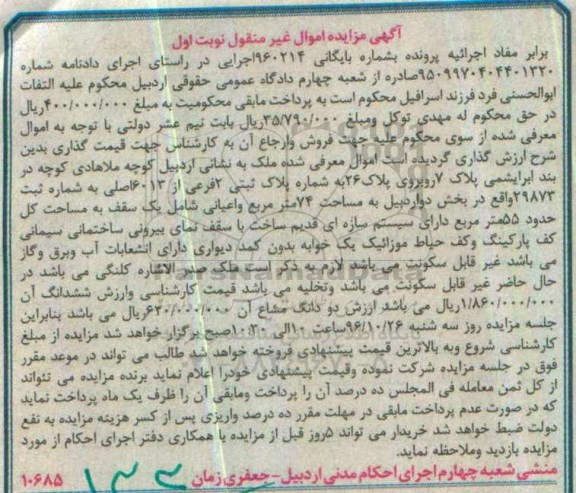 آگهی مزایده اموال غیر منقول نوبت اول
برابر مفاد اجرائیه پرونده بشماره بایگانی ۹۶۰۲۱۴اجرایی در راستای اجرای دادنامه شماره
۹۵۰۹۹۷۰۴۰۴۴۰۱۳۲۰صادره از شعبه چهارم دادگاه عمومی حقوقی اردبیل محکوم علیه التفات
ابوالحسنی فرد فرزند اسرافیل محکوم است به پرداخت مابقی محکومیت به مبلغ ۴۰۰/۰۰۰/۰۰۰ریال
در حق محکوم له مهدی توکل ومبلغ ۳۵/۷۹۰/۰۰۰ریال بابت نیم عشر دولتی با توجه به اموال
معرفی شده از سوی محکوم علیه جهت فروش وارجاع آن به کارشناس جهت قیمت گذاری بدین
شرح ارزش گذاری گردیده است اموال معرفی شده ملک به نشانی اردبیل کوچه ملاهادی کوچه در
بند ابرایشمی پلاک ۷روبروی پلاک۲۶به شماره پلاک ثبتی ۲فرعی از ۶۰۱۳اصلی به شماره ثبت
۲۹۸۷۳واقع در بخش دواردبیل به مساحت ۷۴متر مربع واعیانی شامل یک سقف به مساحت کل
حدود ۵۵متر مربع دارای سیستم سازه ای قدیم ساخت با سقف نمای بیرونی ساختمانی سیمانی
کف پارکینگ وکف حیاط موزائیک یک خوابه بدون کمد دیواری دارای انشعابات آب وبرق وگاز
می باشد غیر قابل سکونت می باشد لازم به ذکر است ملک صدر الاشاره کلنگی می باشد در
حال حاضر غیر قابل سکونت می باشد وتخلیه می باشد قیمت کارشناسی وارزش ششدانگ آن
۱/۸۶۰/۰۰۰/۰۰۰ریال می باشد ارزش دو دانگ مشاع آن ۶۲۰/۰۰۰/۰۰۰ریال می باشد بنابراین
جلسه مزایده روز سه شنبه ۹۶/۱۰/۲۶ساعت ۱۰الی ۱۰:۳۰صبح برگزار خواهد شد مزایده از مبلغ
کارشناسی شروع وبه بالاترین قیمت پیشنهادی فروخته خواهد شد طالب می تواند در موعد مقرر
فوق در جلسه مزایده شرکت نموده وقیمت پیشنهادی خودرا اعلام نماید برنده مزایده می تئواند
از کل ثمن معامله فی المجلس ده درصد آن را پرداخت ومابقی آن را ظرف یک ماه پرداخت نماید
که در صورت عدم پرداخت مابقی در مهلت مقرر ده درصد واریزی پس از کسر هزینه مزایده به نفع
دولت ضبط خواهد شد خریدار می تواند ۵روز قبل از مزایده با همکاری دفتر اجرای احکام از مورد
مزایده بازدید وملاحظه نماید.
منشی شعبه چهارم اجرای احکام مدنی اردبیل-جعفری زمان ۱۰۶۸۵